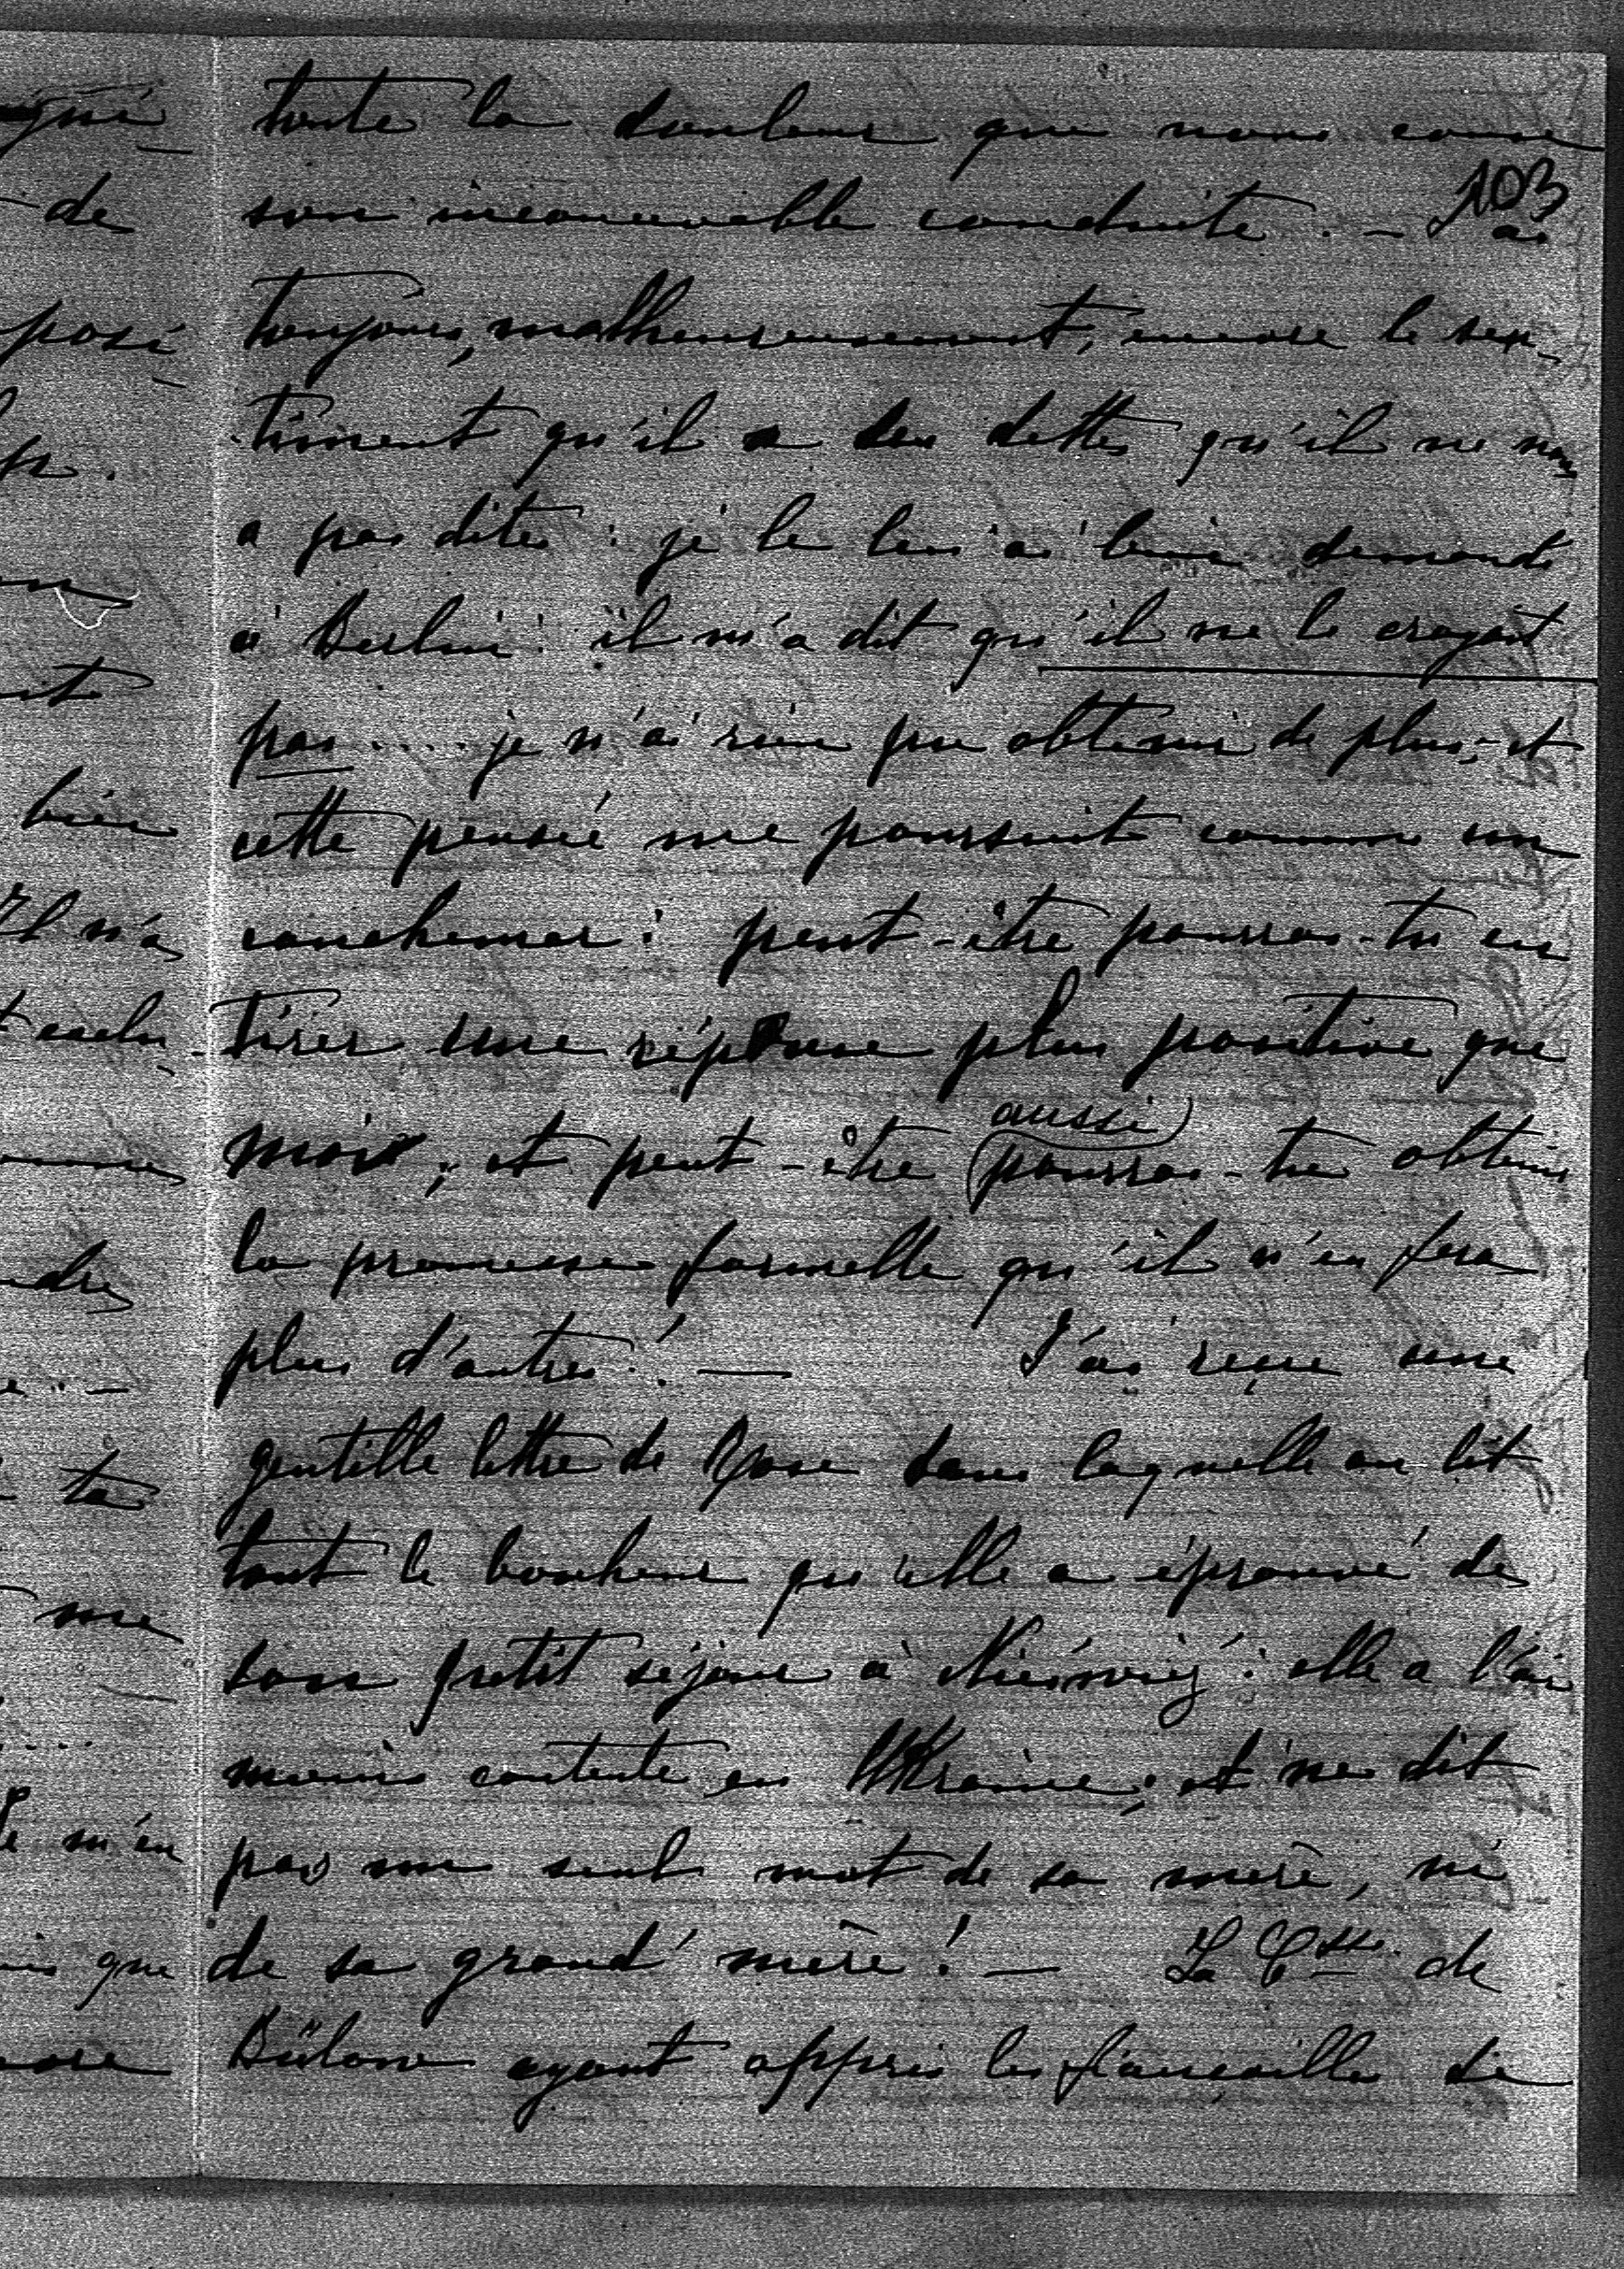 toute la douleur que nous cause
103
son inconcevable conduite. – J'ai
toujours, malheureusement, encore le sen-
timent qu'il a des dettes qu'il ne nous
a pas dites : je le lui ai bien demandé
à Berlin : il m'a dit qu'il ne le croyait
pas .... je n'ai rien pu obtenir de plus, et
cette pensée me poursuit comme un
cauchemar : peut-être pourras-tu en
tirer une réponse plus positive que
moi, et peut-être aussi pourras-tu obtenir
la promesse formelle qu'il n'en fera
plus d'autres ! — J'ai reçu une
gentille lettre de Rose dans laquelle on lit
tout le bonheur qu'elle a éprouvé de
son petit séjour à Nieśwież : elle a l'air
moins contente en Ukraine, et ne dit
pas un seul mot de sa mère, ni
de sa grand'mère ! — La Csse de
Bülow ayant appris les fiançailles de
gné
de
posé
bien
Il n'a
ta
me
m'en
que